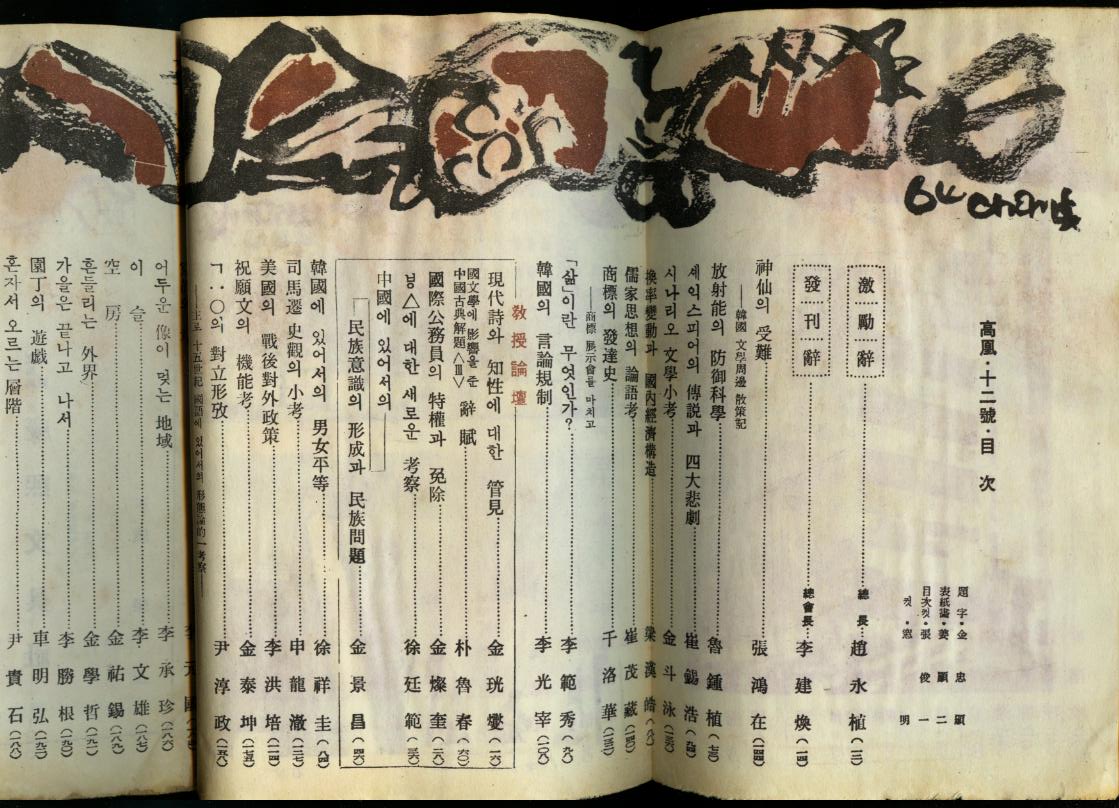 高凰·十二號·目 次
題 字·金 忠 顯
表紙畵·姜 顯 二
目次컷·張 俊 一
컷·窓 明
激勵辭 總長 趙永植
發刊辭 總會長 李建煥
神仙의 受難
——韓國 文學周邊 散策記 張鴻在
放射能의 防御科學 魯鍾植
세익스피어의 傳說과 四大悲劇 崔錫浩
시나리오 文學小考 金斗泳
換率變動과 國內經濟構造 梁漢皓
儒家思想의 論語考 崔茂藏
商標의 發達史
——商標 展示會를 마치고 千洛華
「삶」이란 무엇인가? 李範秀
韓國의 言論規制 李光宰
敎授論壇
現代詩와 知性에 대한 管見 金珖燮
國文學에 影響을 준
中國古典解題〈Ⅲ〉 辭賦 朴魯春
國際公務員의 特權과 免除 金燦奎
넝△에 대한 새로운 考察 徐廷範
中國에 있어서의
「民族意識의 形成과 民族問題 金景昌
韓國에 있어서의 男女平等 徐祥圭
司馬遷 史觀의 小考 申龍澈
美國의 戰後對外政策 李洪培
祝願文의 機能考 金泰坤
ㄱ··ㅇ의 對立形攷 尹淳政
——主로 十五世紀 國語에 있어서의 形態論的 一考察——
어두운 像이 멎는 地域 李承珍
이슬 李文雄
空房 金祐錫
흔들리는 外界 金學哲
가을은 끝나고 나서 李勝根
園丁의 遊戱 車明弘
혼자서 오르는 層階 尹貴石